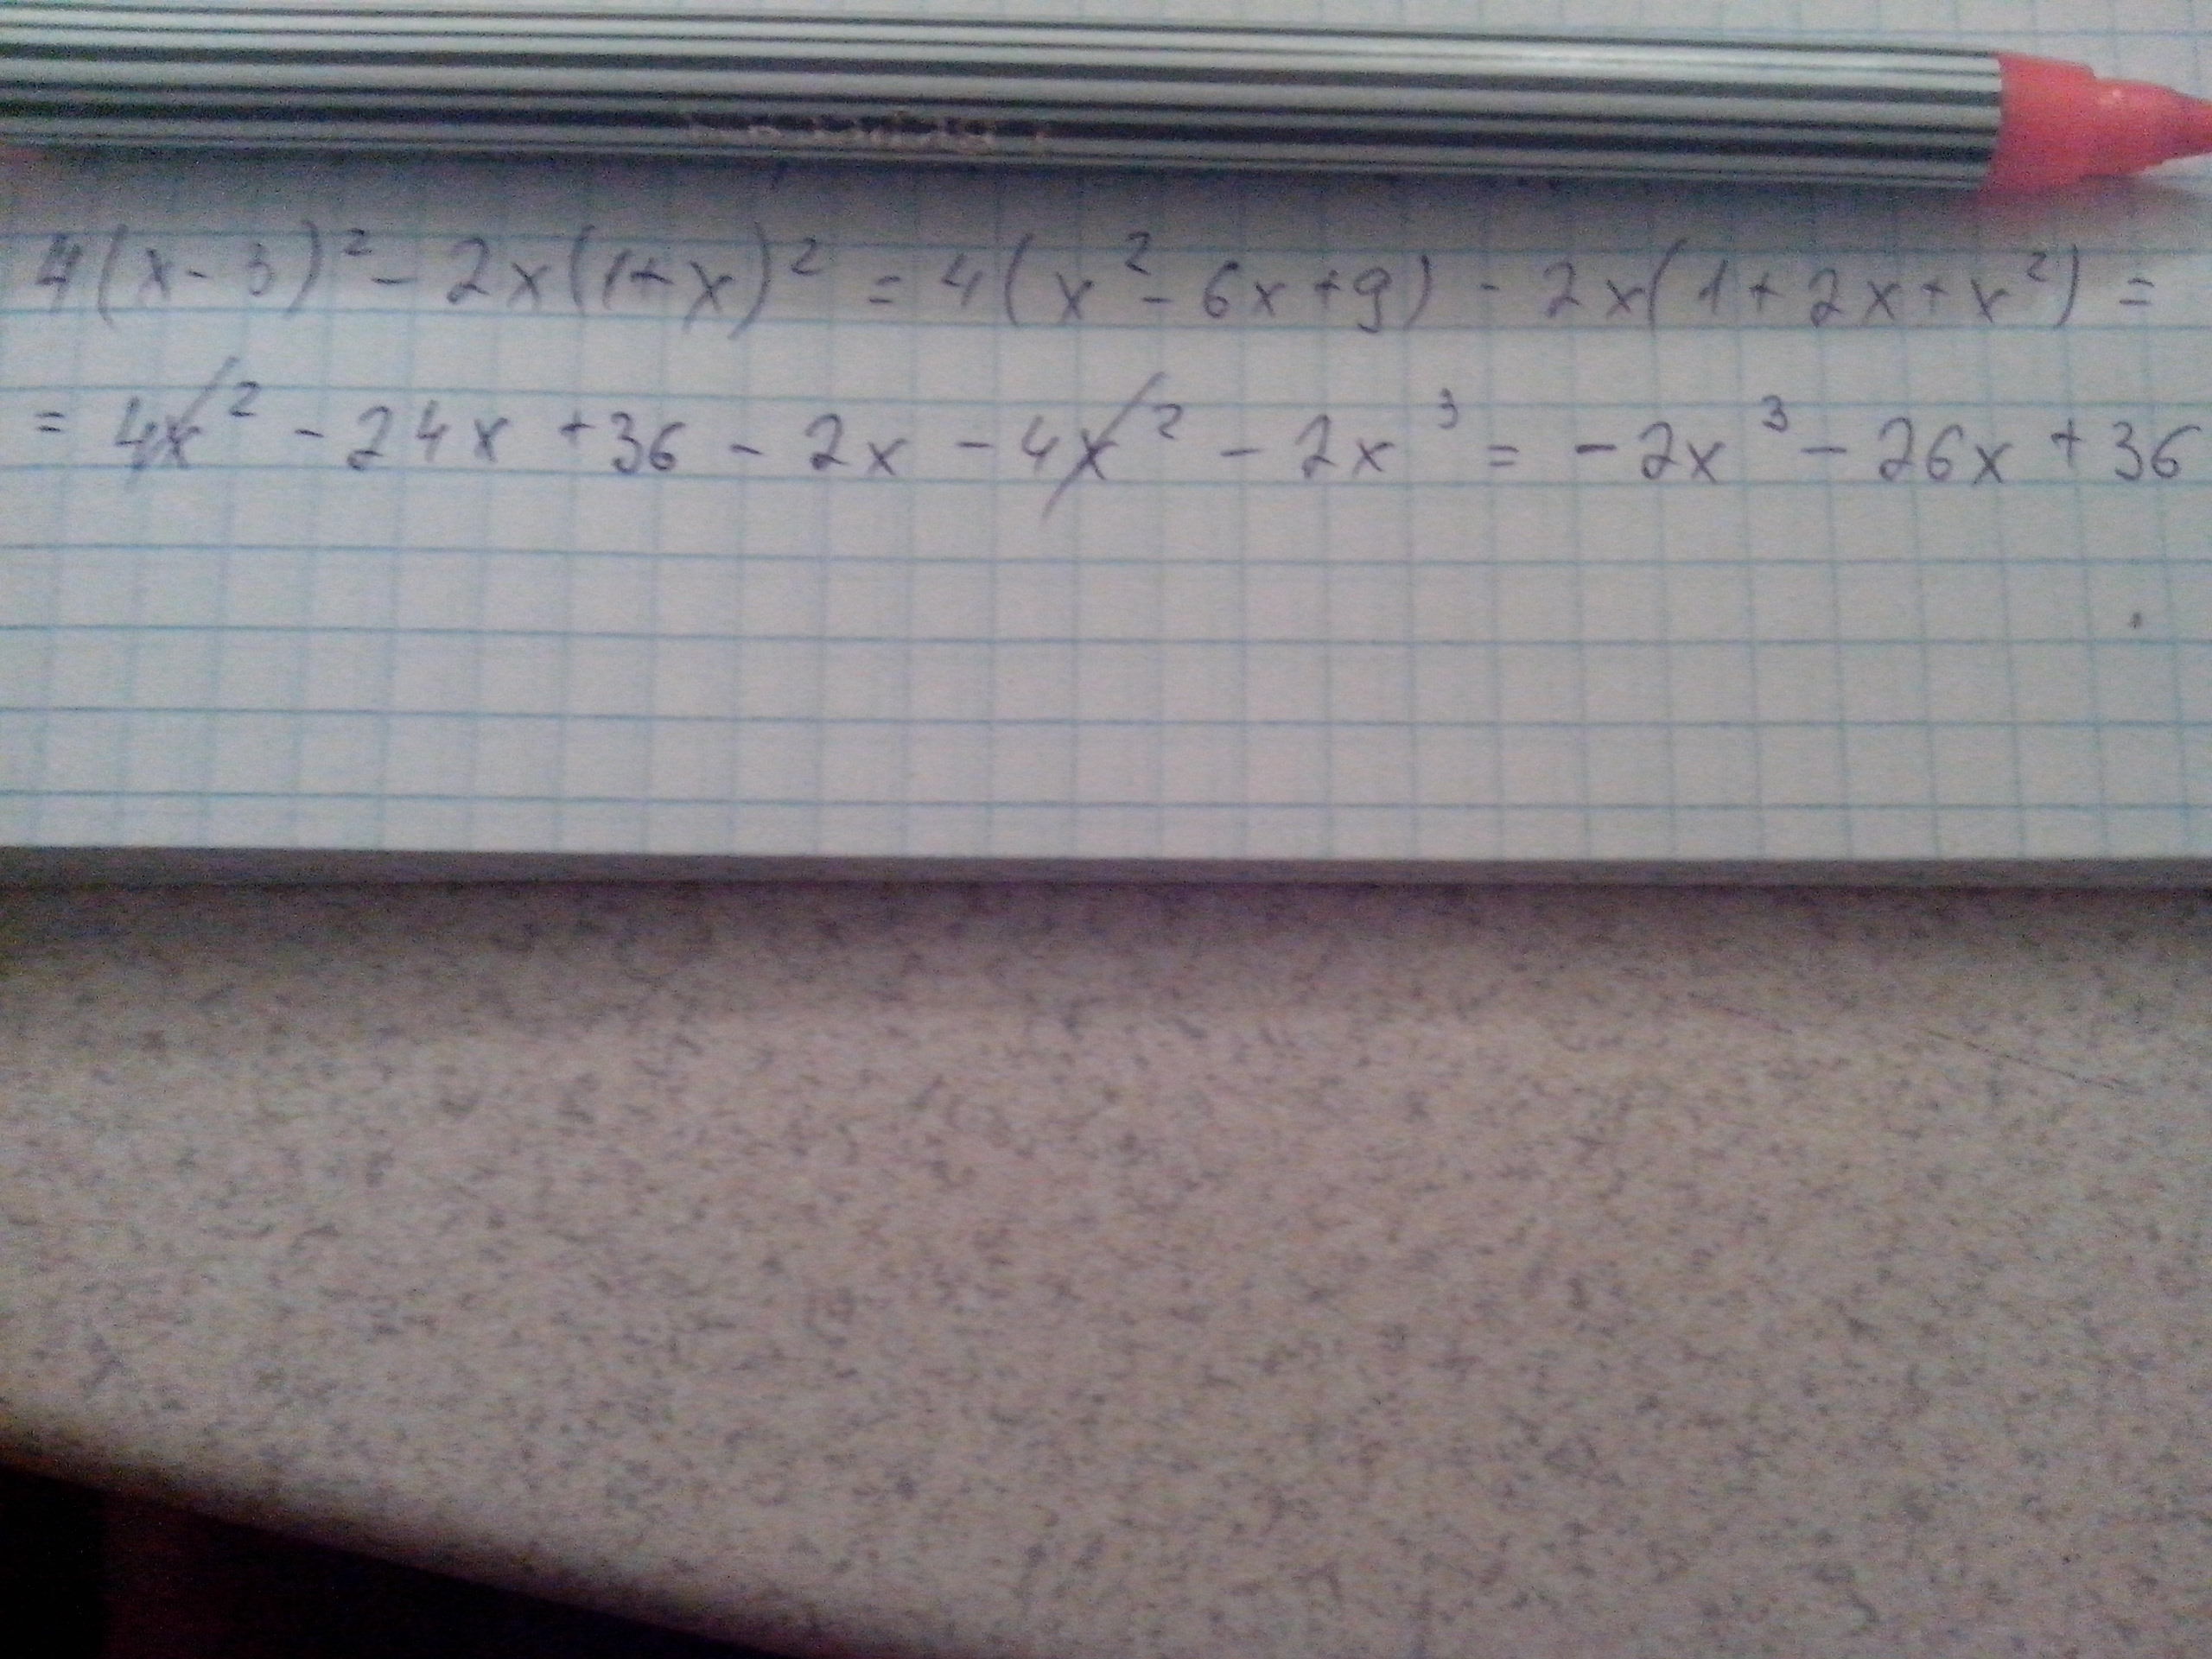 4(x-3)² - 2x(1+x)² = 4(x² - 6x + 9) - 2x(1 + 2x + x²) =
= 4x² - 24x + 36 - 2x - 4x² - 2x³ = -2x³ - 26x + 36